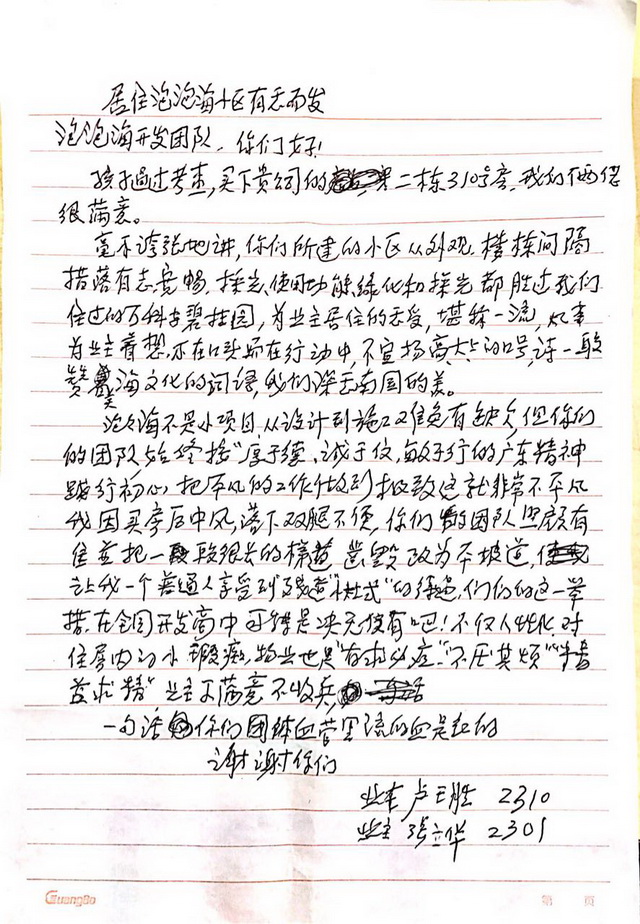 居住泡泡海小区有感而发
泡泡海开发团队,你们好!
孩子通过考查,买下贵司的 第二栋310号房,我们俩
很满意。
毫不誇张地讲,你们所建的小区从外观、楼栋间隔
措落有志宽畅、採光、使用功能、绿化和採光都胜过我们
住过的万科与碧桂园,为业主居住的享受,堪称一流,
为业主着想不在口头而在行动中,不宣扬高大上的口号,
海文化的词语,我们深 南国的美。
泡泡海不是小项目,从设计到施工难免有缺欠,但你们
的团队始终按"厚于德、诚于信、敏于行的广东精神
践行初心,把平凡的工作做到极致这就非常不平凡
我因买房后中风,落下双腿不便,你们的团队照顾有
佳並把一段很长的梯道 凿毁改为平坡道,
让我一个普通人享受到 ,们们的这一举
措,在全国开发商中可能是决无仅有吧!不仅人性化,对
住房内的小瑕疵,物业也是"有求必应""不厌其烦"
益求精"业主不满意不收兵,
一句话 你们团体血管里流的血是红的
谢谢你们
业主 卢玉胜 2310
业主 张立华 2301
GuangBo
第 页